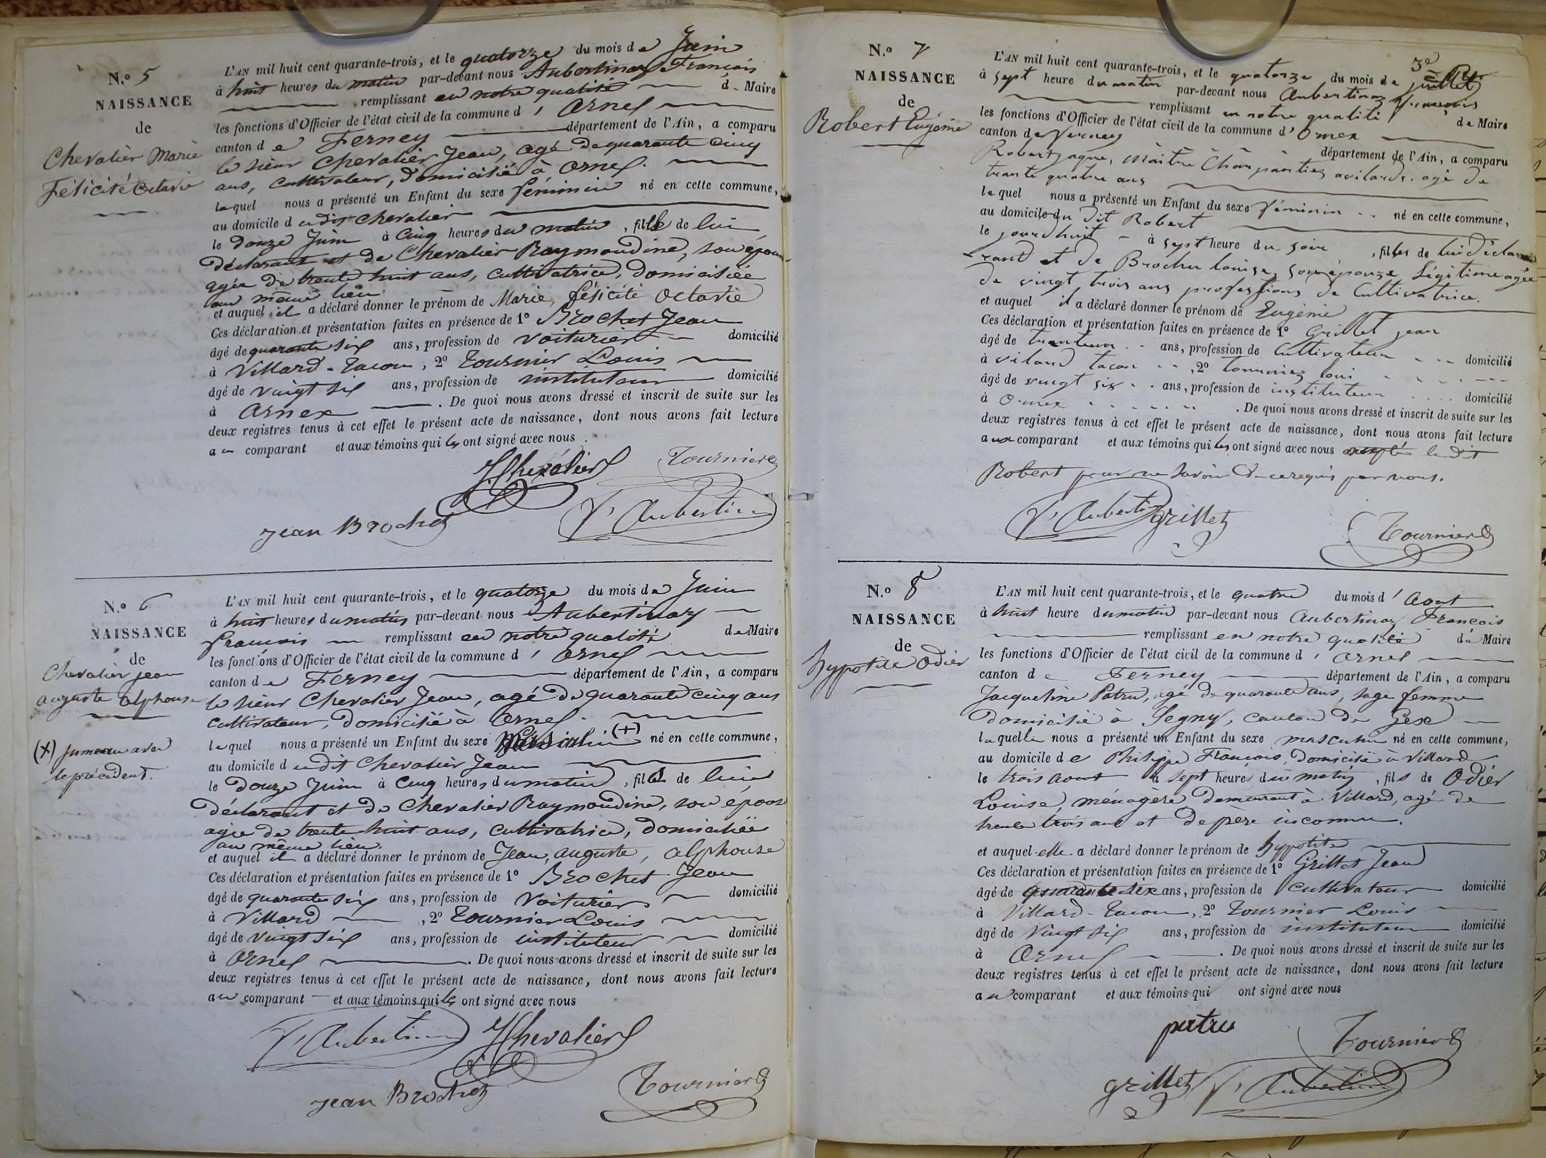 N.º 5
NAISSANCE
de
Chevalier Marie
Félicité Octavie
L'AN mil huit cent quarante-trois, et le quatorze du mois de Juin
à huit heures du matin par-devant nous Aubertinaz François
remplissant en notre qualité d Maire
les fonctions d'Officier de l'état civil de la commune d' Ornex
canton de Ferney département de l'Ain, a comparu
le sieur Chevalier Jean, agé de quarante cinq
ans, cultivateur, domicilié à Ornex.
lequel nous a présenté un Enfant du sexe féminin né en cette commune,
au domicile dudit Chevalier
le douze Juin à cinq heures du matin, fille de lui
déclarant et de Chevalier Raymondine, son épouse
agée de trente huit ans, cultivatrice, domiciliée
au même lieu
et auquel il a déclaré donner le prénom de Marie, Félicité Octavie
Ces déclaration et présentation faites en présence de 1º Brochet Jean
âgé de quarante six ans, profession de voiturier domicilié
à Villard-Tacon, 2º Tournier Louis
âgé de vingt six ans, profession de instituteur domicilié
à Ornex. De quoi nous avons dressé et inscrit de suite sur les
deux registres tenus à cet effet le présent acte de naissance, dont nous avons fait lecture
au comparant et aux témoins qui les ont signé avec nous.
JChevalier Tournier
Jean Brochet F. Aubertin
N.º 6
NAISSANCE
de
Chevalier Jean
Auguste Alphonse
(X) Jumeau avec
le précédent.
L'AN mil huit cent quarante-trois, et le quatorze du mois de Juin
à huit heures du matin par-devant nous Aubertinaz
François remplissant en notre qualité de Maire
les fonctions d'Officier de l'état civil de la commune d' Ornex
canton de Ferney département de l'Ain, a comparu
le sieur Chevalier Jean, agé de quarante cinq ans
cultivateur, domicilié à Ornex.
lequel nous a présenté un Enfant du sexe Masculin (+) né en cette commune,
au domicile dudit Chevalier Jean
le douze Juin à cinq heures du matin, fils de lui
déclarant et de Chevalier Raymondine, son épouse
agée de trente huit ans, cultivatrice, domiciliée
au même lieu.
et auquel il a déclaré donner le prénom de Jean, Auguste, Alphonse
Ces déclaration et présentation faites en présence de 1º Brochet Jean
âgé de quarante six ans, profession de voiturier domicilié
à Villard, 2º Tournier Louis
âgé de vingt six ans, profession de instituteur domicilié
à Ornex. De quoi nous avons dressé et inscrit de suite sur les
deux registres tenus à cet effet le présent acte de naissance, dont nous avons fait lecture
au comparant et aux témoins qui les ont signé avec nous
F. Aubertin JChevalier
Jean Brochet Tournier
N.º 7
NAISSANCE
de
Robert Eugénie
L'AN mil huit cent quarante-trois, et le quatorze du mois de juillet
à sept heure du matin par-devant nous Aubertinaz françois
remplissant en notre qualité de Maire
les fonctions d'Officier de l'état civil de la commune d' Ornex
canton de Ferney département de l'Ain, a comparu
Robert Maître Charpantier agé de
trante quatre ans
lequel nous a présenté un Enfant du sexe féminin né en cette commune,
au domicile du dit Robert
le jourdhuit à sept heure du soir, filles de lui décla
rant et de Brochu Louise, son épouze légitime agée
de vingt trois ans profession de Cultivatrice.
et auquel il a déclaré donner le prénom de Eugénie
Ces déclaration et présentation faites en présence de 1º Grillet jean
âgé de ans, profession de Cultivateur domicilié
à vilard tacon 2º tourniez loui
âgé de vingt six ans, profession de instituteur domicilié
à Ornex. De quoi nous avons dressé et inscrit de suite sur les
deux registres tenus à cet effet le présent acte de naissance, dont nous avons fait lecture
aux comparant et aux témoins qui les ont signé avec nous le dit
Robert pour ne savoir de ce requis par nous.
F. Aubertin Grillet Tournier
N.º 8
NAISSANCE
de
hypolite Odier
L'AN mil huit cent quarante-trois, et le quatre du mois d' Août
à huit heure du matin par-devant nous Aubertinaz François
remplissant en notre qualité de Maire
les fonctions d'Officier de l'état civil de la commune d' Ornex
canton de Ferney département de l'Ain, a comparu
Jacqueline Patru, agé de quarante ans, sage femme
domicilié à Segny, canton de Gex
laquelle nous a présenté un Enfant du sexe masculin né en cette commune,
au domicile de Philippe François, domicilié à Villard
le trois août à sept heure du matin, fils de Odier
Louise, ménagère demeurant à Villard, agé de
trente trois ans et de père inconnu.
et auquel elle a déclaré donner le prénom de hypolite
Ces déclaration et présentation faites en présence de 1º Grillet Jean
âgé de ans, profession de Cultivateur domicilié
à Villard-Tacon, 2º Tournier Louis
âgé de vingt six ans, profession de instituteur domicilié
à Ornex. De quoi nous avons dressé et inscrit de suite sur les
deux registres tenus à cet effet le présent acte de naissance, dont nous avons fait lecture
au comparant et aux témoins qui ont signé avec nous
patru Tournier
Grillet F. Aubertin